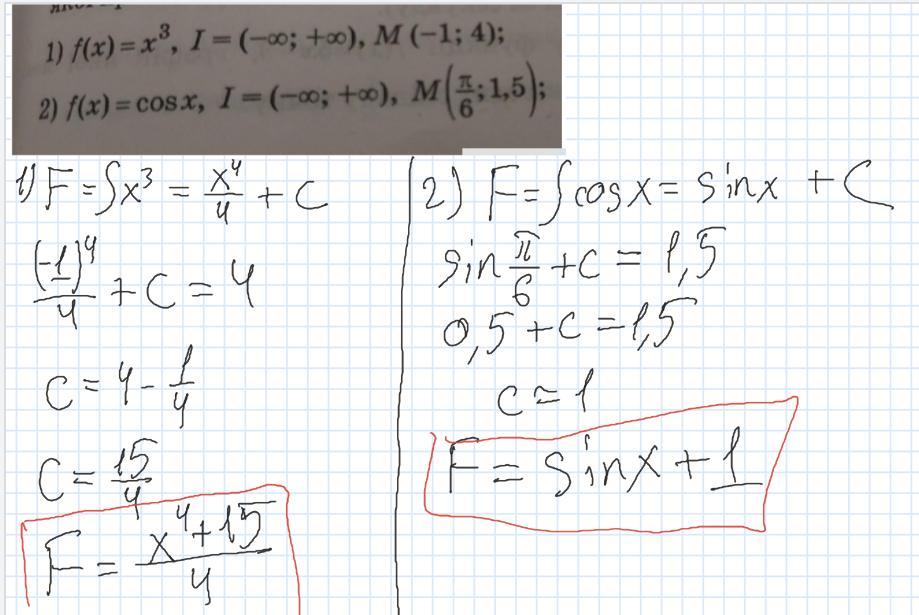 1) f(x) = x³, I = (−∞; +∞), M (−1; 4);
2) f(x) = cos x, I = (−∞; +∞), M(π/6; 1,5);
1) F = ∫x³ = x⁴/4 + C
(-1)⁴/4 + C = 4
C = 4 - 1/4
C = 15/4
F = x⁴+15/4
2) F = ∫cosx = sinx + C
sin π/6 + C = 1,5
0,5 + C = 1,5
C = 1
F = sinx + 1